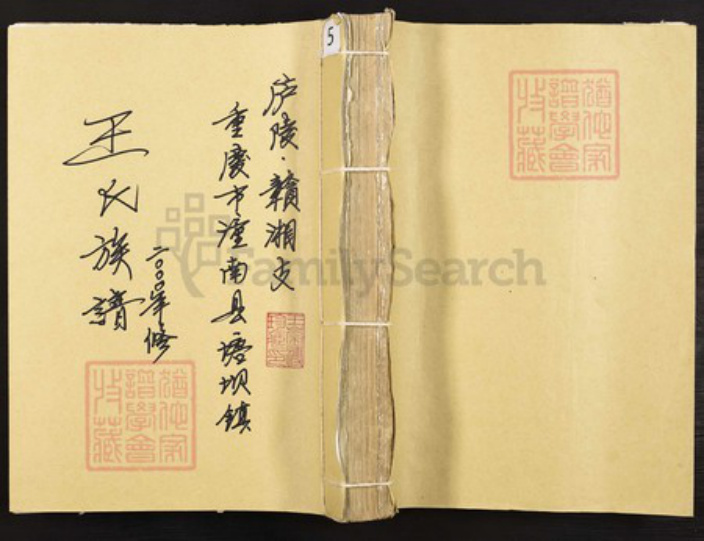 5
庐陵·贛湘支
重慶市潼南县塘坝鎮
二〇〇〇年修
王氏族譜
猶他家
譜學會
收藏
猶他家
譜學會
收藏
FamilySearch